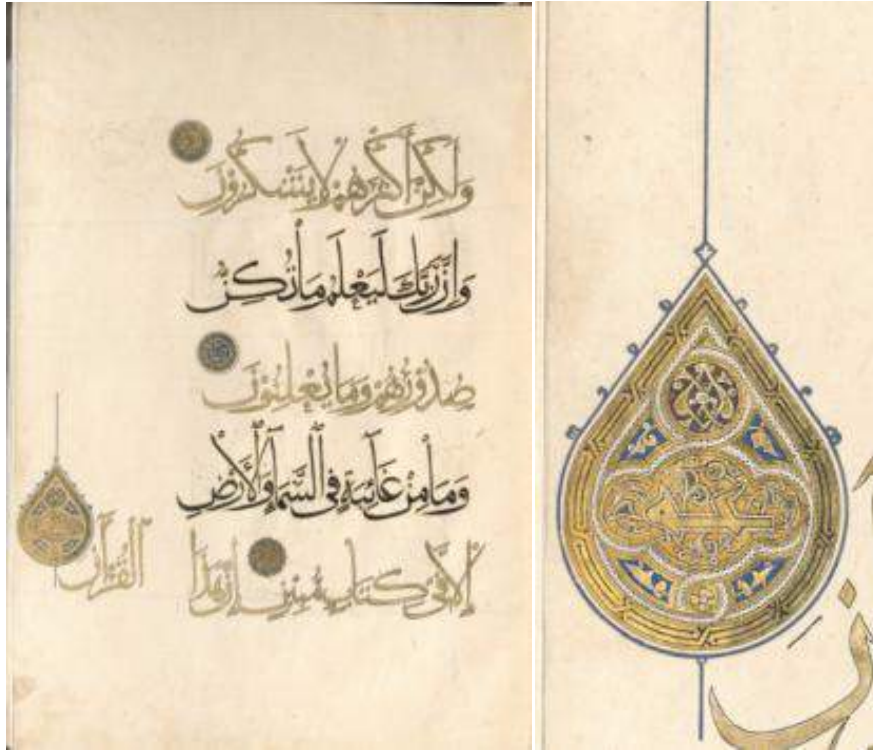 وَلَكِنَّ أَكْثَرَهُمْ لَا يَشْكُرُونَ
وَإِنَّ رَبَّكَ لَيَعْلَمُ مَا تُكِنُّ
صُدُورُهُمْ وَمَا يُعْلِنُونَ
وَمَا مِنْ غَائِبَةٍ فِي السَّمَاءِ وَالْأَرْضِ
إِلَّا فِي كِتَابٍ مُبِينٍ إِنَّ هَذَا
الْقُرْآنَ